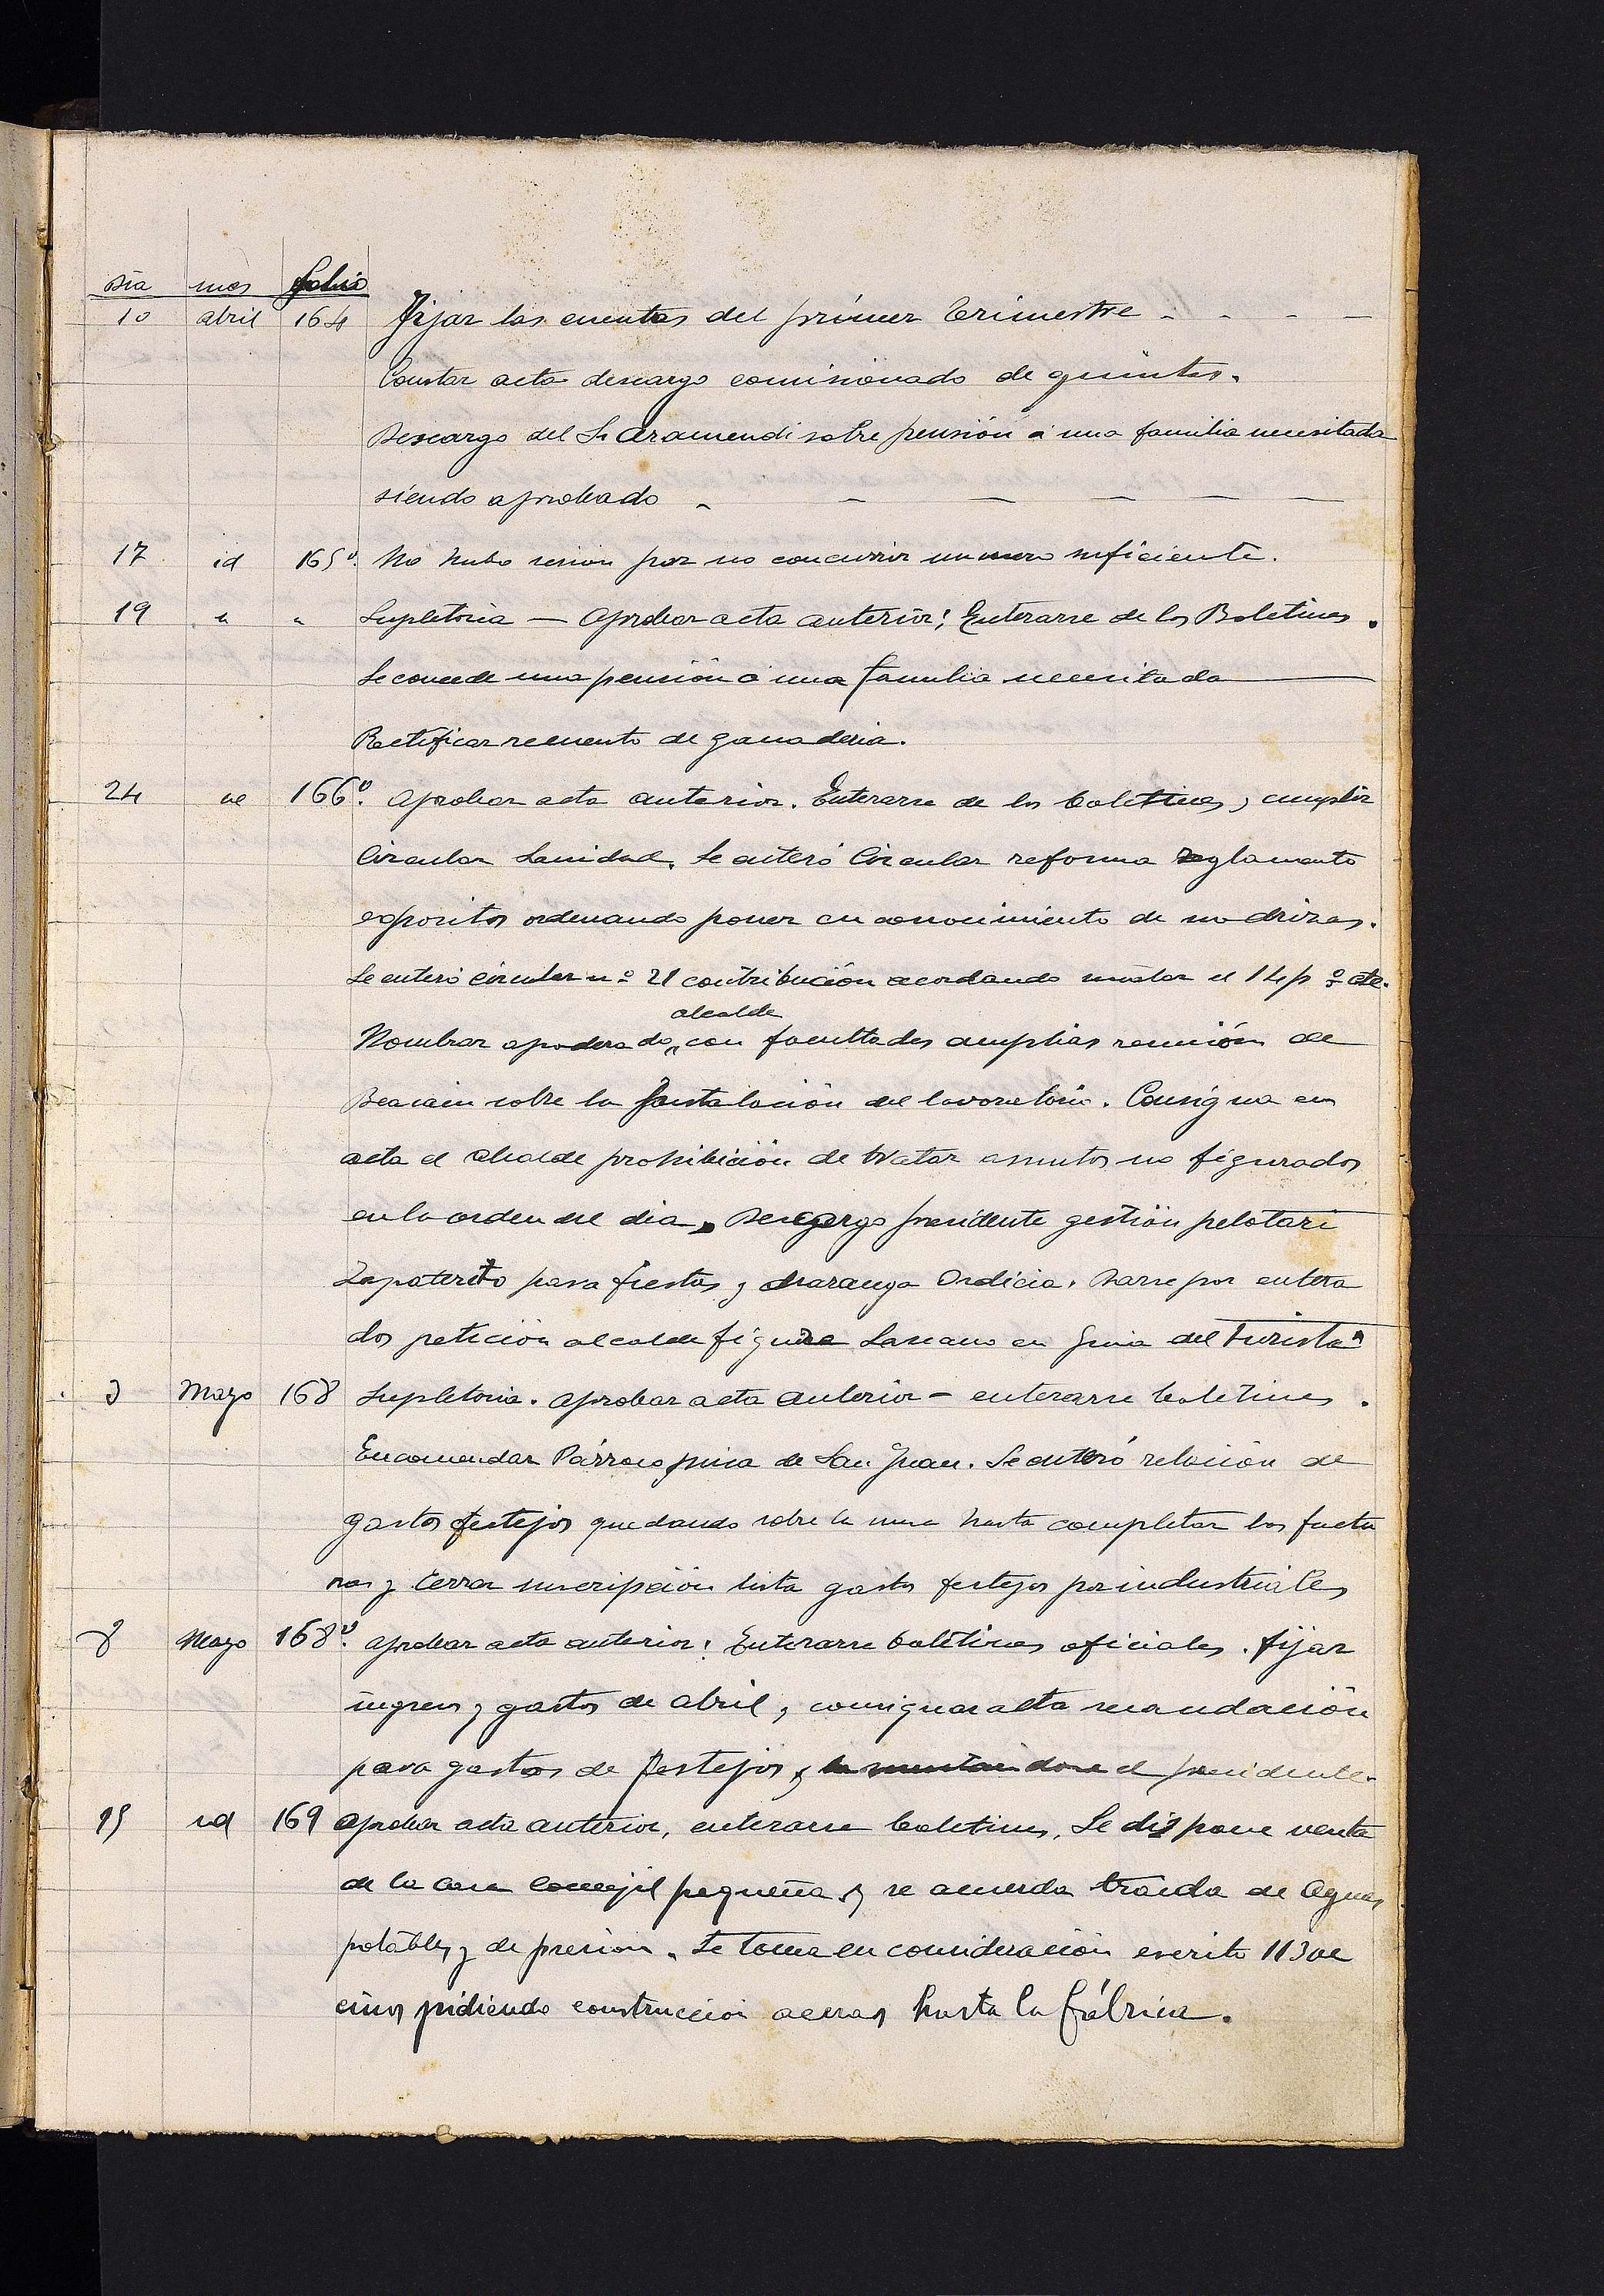 Dia mes folio
10 abril 164 Fijar las cuentas del primer trimestre - - - -
Constar acta descargo comisionado de quintas.
Descargo del Sr Aramendi sobre pensión á una familia necesitada
siendo aprobado - - - - - -
17 id 165v. No hubo sesion por no concurrir numero suficiente.
19 " " Supletoria — Aprobar acta anterior; Enterarse de los Boletines.
Se concede una pensión á una familia necesitada
Rectificar recuento de ganaderia.
24 id 166v. Aprobar acta anterior. Enterarse de los boletines, cumplir
Circular Sanidad. Se enteró Circular reforma Reglamento
expositos ordenando poner en conocimiento de nodrizas.
Se enteró circular nº 21 contribución acordando el 14 p º
alcalde
Nombrar apoderado, con facultades amplias reunión de
Beasain sobre la instalación del lavoratorio. Consigna en
acta el alcalde prohibición de tratar asuntos no figurados
en la orden del dia. Descargo presidente gestión pelotari
Zapaterito para fiestas y charanga Ordicia. Darse por entera
dos petición alcalde figure Lazcano en Guia del Turista"
3 Mayo 168 Supletoria. Aprobar acta anterior - enterarse boletines.
Encomendar Párroco misa de San Juan. Se enteró relación de
gastos festejos quedando sobre la mesa hasta completar las factu
ras y cerrar suscripción lista gastos festejos por industriales
8 Mayo 168v. Aprobar acta anterior: Enterarse boletines oficiales. fijar
ingresos y gastos de abril, consignar acta recaudación
para gastos de festejos, lamentandose el presidente.
15 id 169 Aprobar acta anterior, enterarse boletines. Se dispone venta
de la casa concejil pequeña y se acuerda traida de aguas
potables y de presion. Se toma en consideración escrito 113 ve
cinos pidiendo construcción aceras hasta la fábrica.